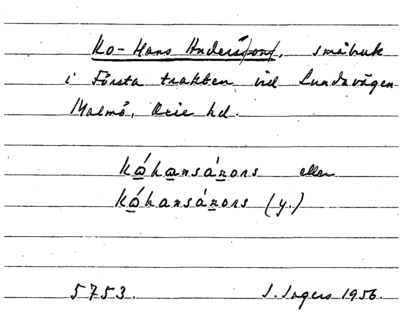 Ko-Hans Anders, småbruk
i Första trakten vid Lundavägen
Malmö, Oxie hd.
kóhansánors eller
kóhansánors (y.)
5753. I. Ingers 1956.